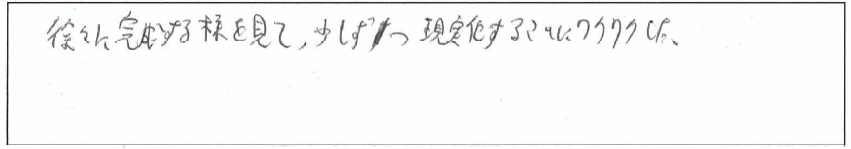 徐々に完成する様を見て、少しずつ現実化することにワクワクした。